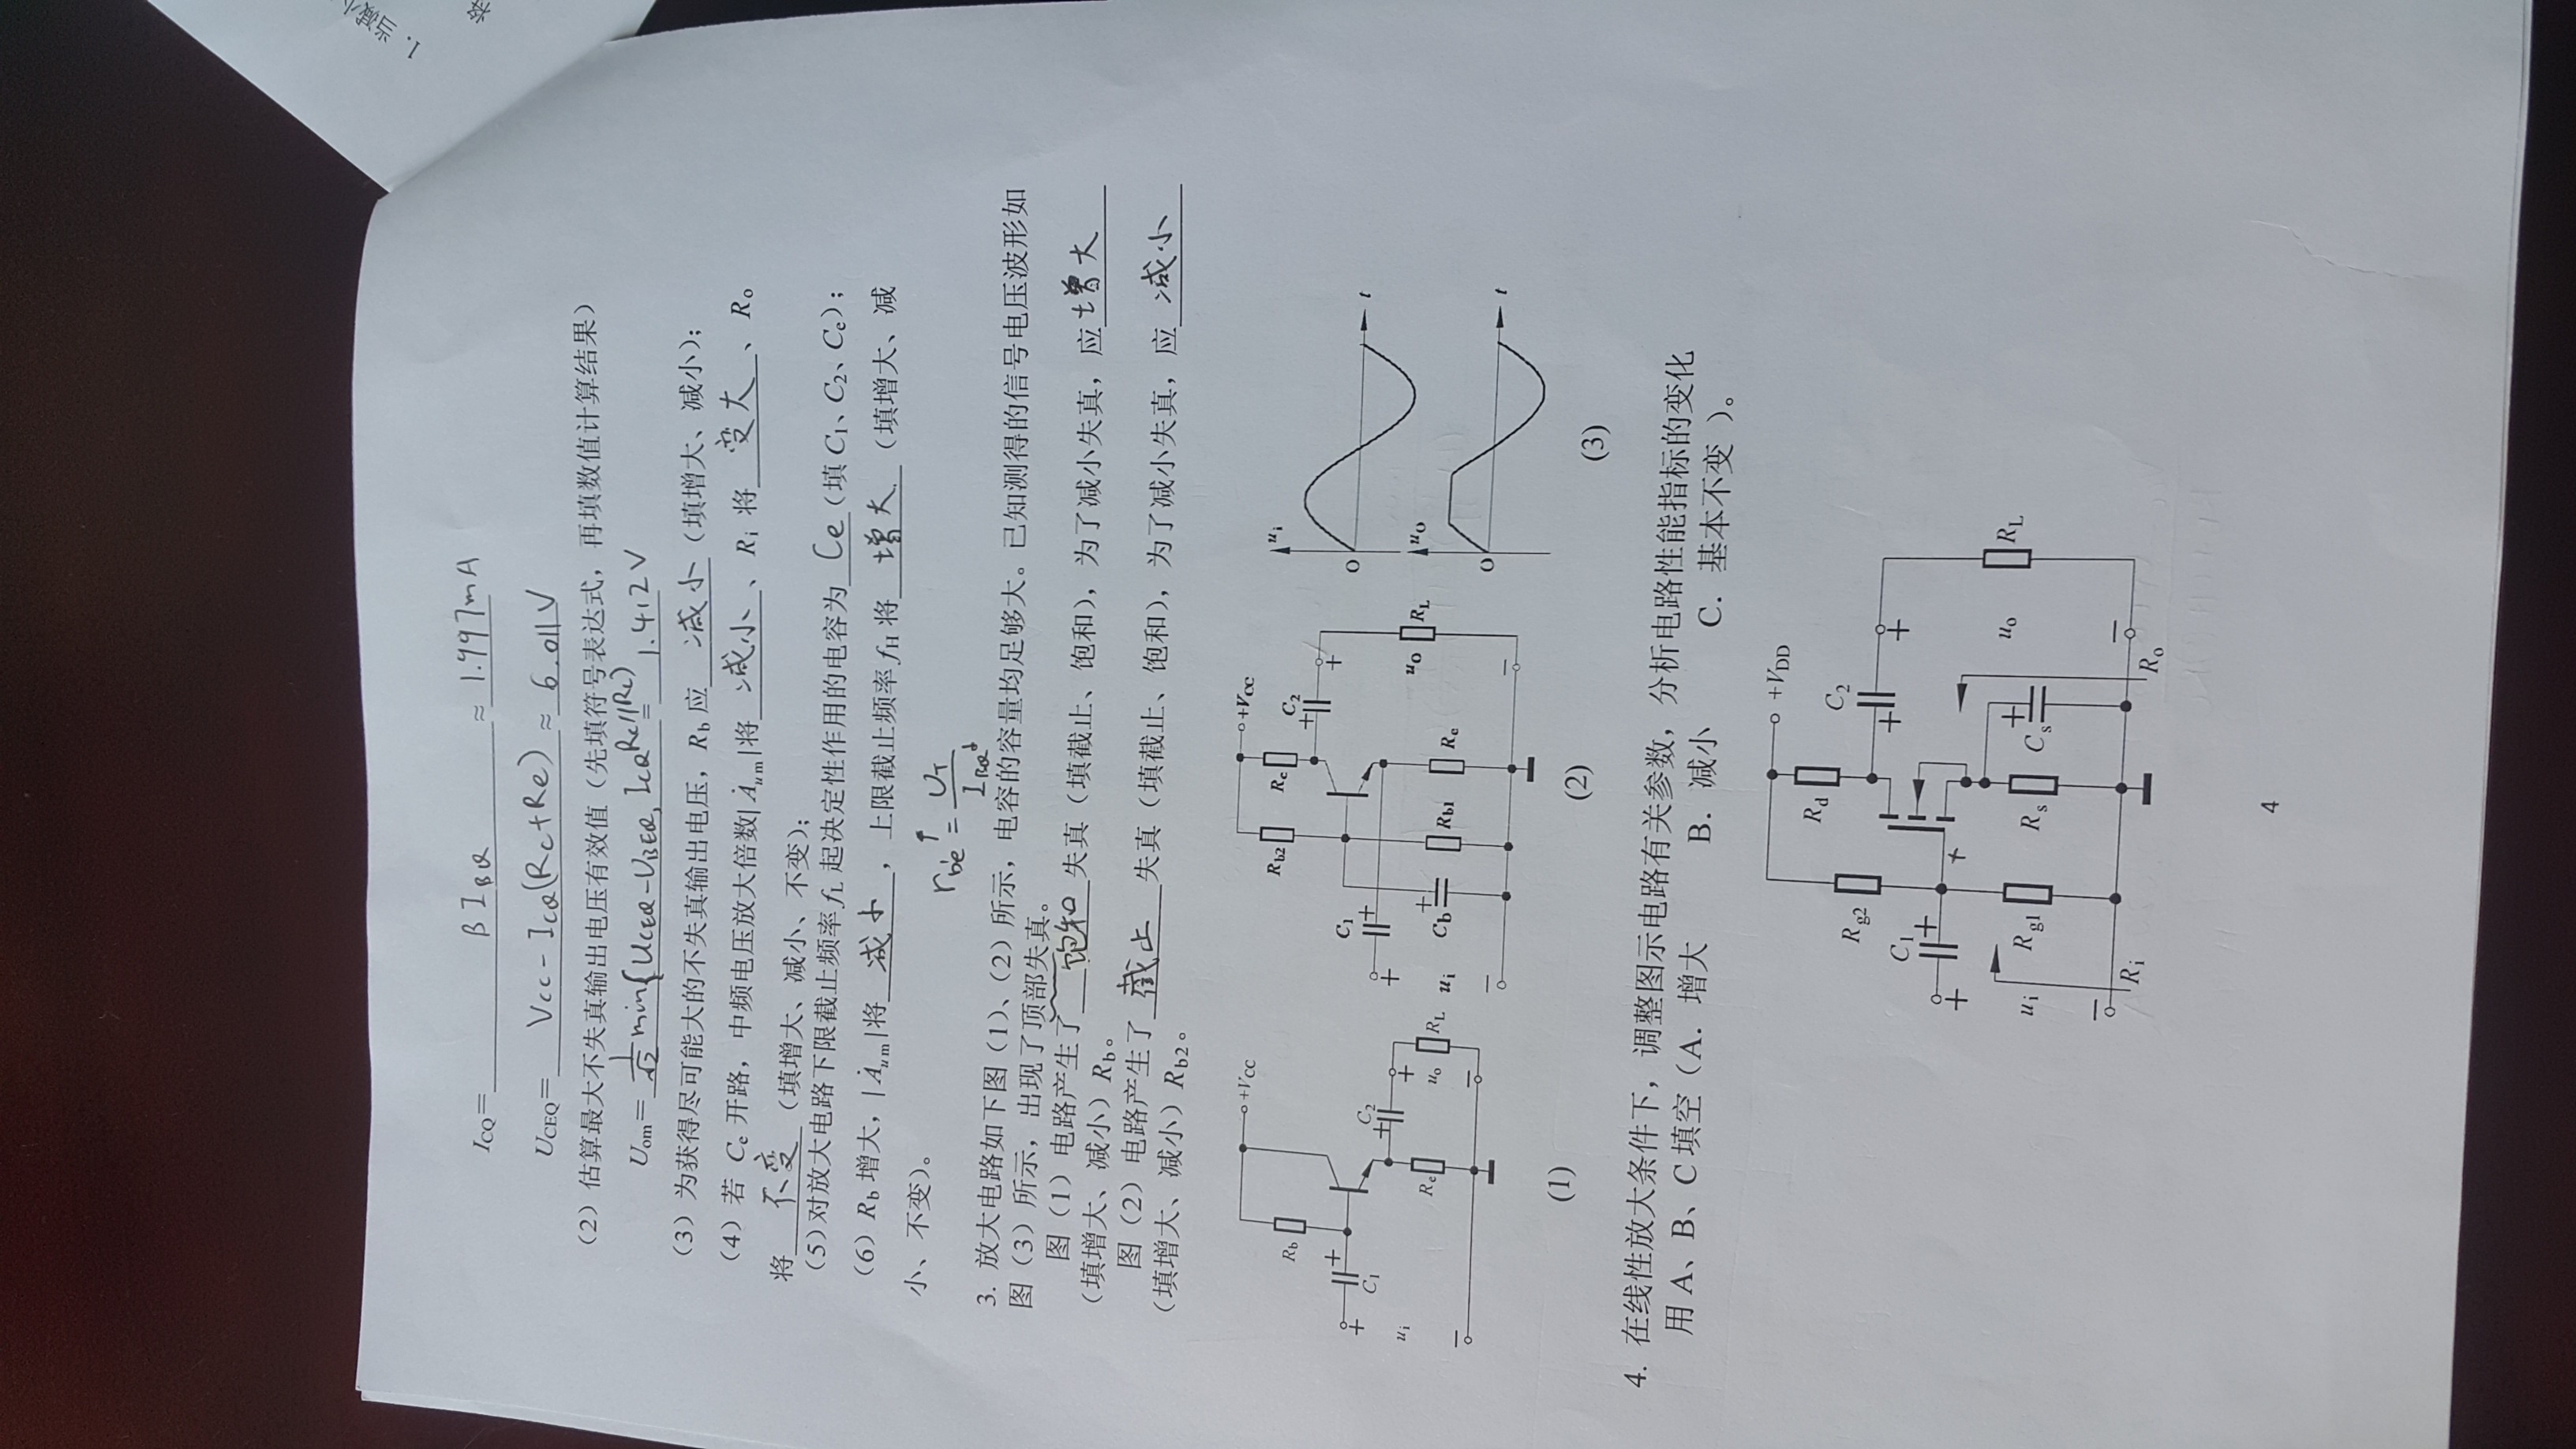 I_CQ= βI_BQ ≈ 1.997mA
U_CEQ= Vcc-I_CQ(Rc+Re) ≈ 6.011V
（2）估算最大不失真输出电压有效值（先填符号表达式，再填数值计算结果）
U_om= 1/√2 min{U_CEQ-U_BEQ, I_CQ Rc//RL) = 1.412V
（3）为获得尽可能大的不失真输出电压，R_b 应 减小 （填增大、减小）；
（4）若 C_e 开路，中频电压放大倍数|Ȧ_um|将 减小 、R_i 将 变大 、R_o
将 不变 （填增大、减小、不变）；
（5）对放大电路下限截止频率 f_L 起决定性作用的电容为 Ce （填 C_1、C_2、C_e）；
（6）R_b 增大，|Ȧ_um|将 减小 ，上限截止频率 f_H 将 增大 （填增大、减
小、不变）。
r_b'e↑ = U_T/I_BQ↓
3. 放大电路如下图（1）、（2）所示，电容的容量均足够大。已知测得的信号电压波形如
图（3）所示，出现了顶部失真。
图（1）电路产生了 饱和 失真（填截止、饱和），为了减小失真，应 增大
（填增大、减小）R_b。
图（2）电路产生了 截止 失真（填截止、饱和），为了减小失真，应 减小
（填增大、减小）R_b2。
+V_CC
R_b
+
C_1
+
u_i
−
C_2
+
R_e
+
u_o
−
R_L
(1)
+V_CC
R_b2
R_c
C_2
+
+
C_1
+
+
u_i
−
+
C_b
R_b1
R_e
u_O
−
R_L
(2)
u_i
O
t
u_O
O
t
(3)
4. 在线性放大条件下，调整图示电路有关参数，分析电路性能指标的变化
用 A、B、C 填空（A．增大 B．减小 C．基本不变 ）。
+V_DD
R_d
R_g2
C_2
+
+
C_1
+
+
+
u_i
−
R_g1
R_s
+
C_s
u_o
−
R_L
R_i
R_o
4
1. 当减小
将